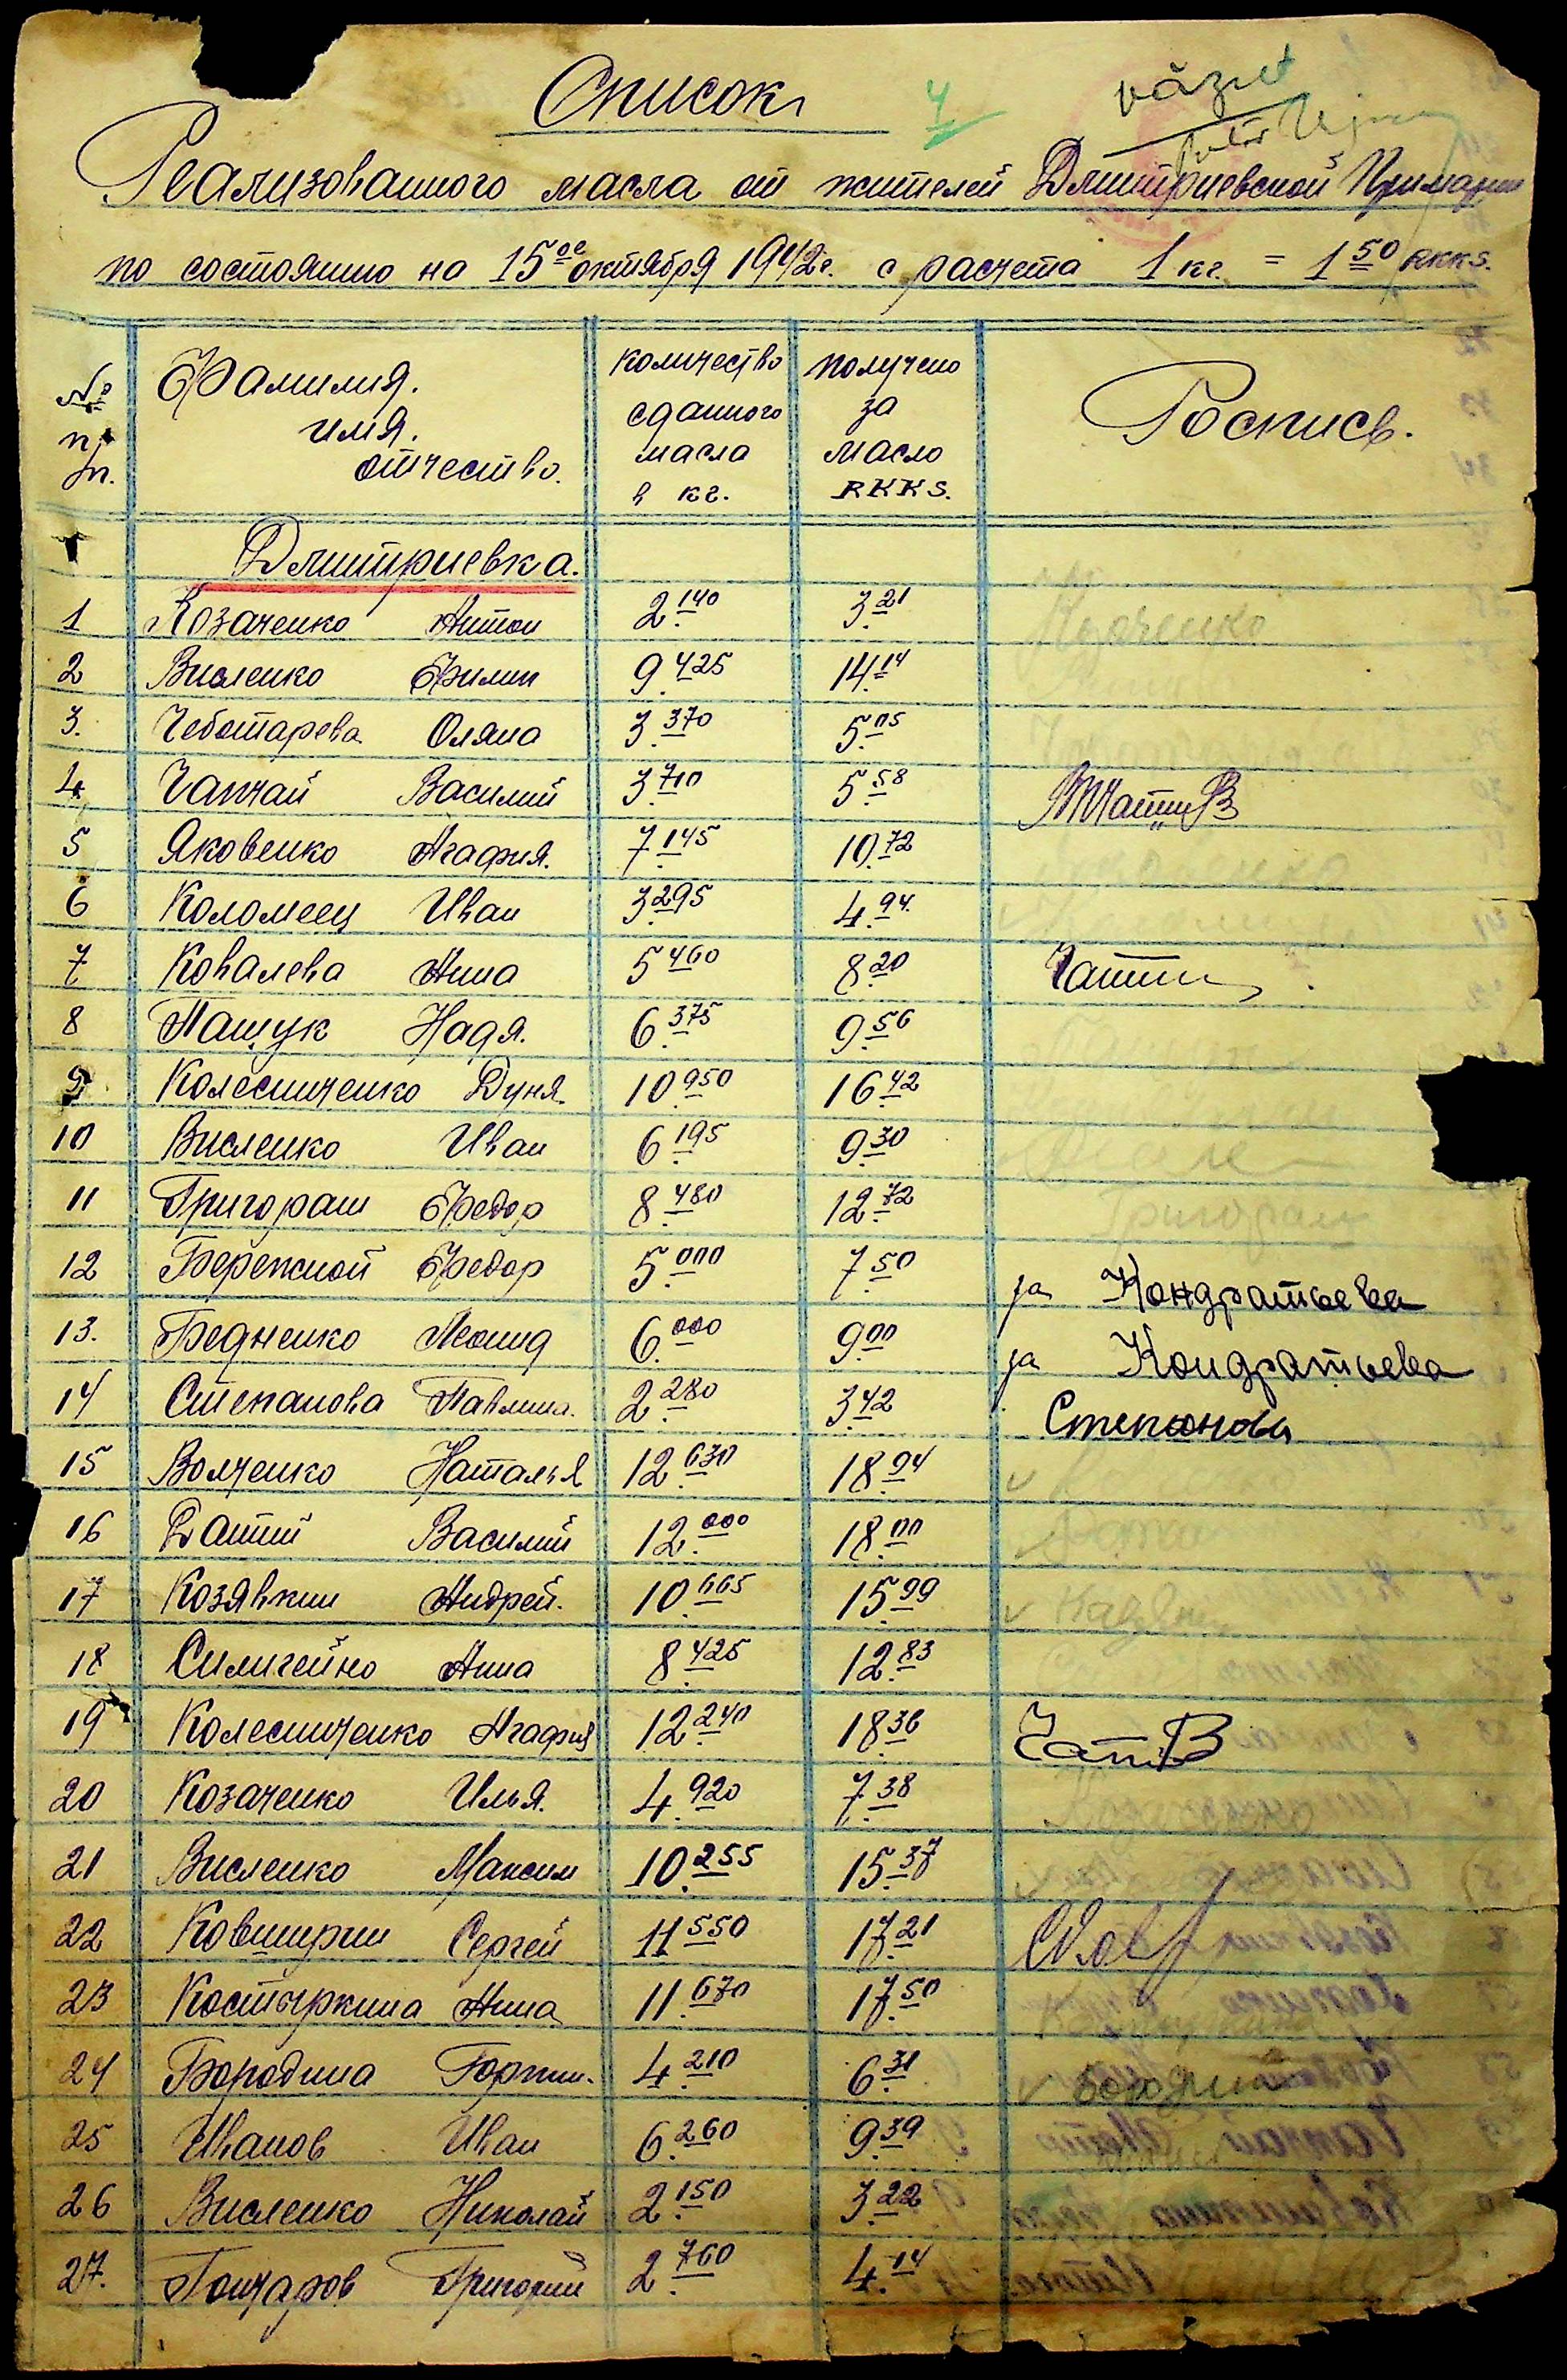 Список
4
văzut
Реализованного масла от жителей Дмитриевской Примарии
по состоянию на 15ое октября 1942г. с расчета 1 кг. = 1 50 RKKS.
№ п/п. Фамилия. имя. отчество. количество сданного масла в кг. получено за масло RKKS. Роспись.
Дмитриевка.
1 Козаченко Антон 2.140 3.21 Козаченко
2 Висленко Филип 9.425 14.14
3. Чеботарева Оляна 3.370 5.05
4 Чапчай Василий 3.710 5.58
5 Яковенко Агафия. 7.145 10.72
6 Коломеец Иван 3.295 4.94
7 Ковалева Анна 5.460 8.20
8 Пащук Надя. 6.375 9.56
9 Колесниченко Дуня. 10.950 16.42
10 Висленко Иван 6.195 9.30
11 Григораш Федор 8.480 12.72 Григораш
12 Бережной Федор 5.000 7.50 за Кондратьева
13. Бедненко Леонид 6.000 9.00 за Кондратьева
14 Степанова Павлина. 2.280 3.42 Степанова
15 Волченко Наталья 12.630 18.94
16 Ратий Василий 12.000 18.00
17 Козявкин Андрей. 10.665 15.99
18 Силигейно Анна 8.425 12.83
19 Колесниченко Агафия 12.240 18.36
20 Козаченко Илья. 4.920 7.38
21 Висленко Максим 10.255 15.37
22 Ковширин Сергей 11.550 17.21
23 Костыркина Анна 11.670 17.50
24 Бородина Горпин. 4.210 6.31
25 Иванов Иван 6.260 9.39
26 Висленко Николай 2.150 3.22
27. Гончаров Григорий 2.760 4.14